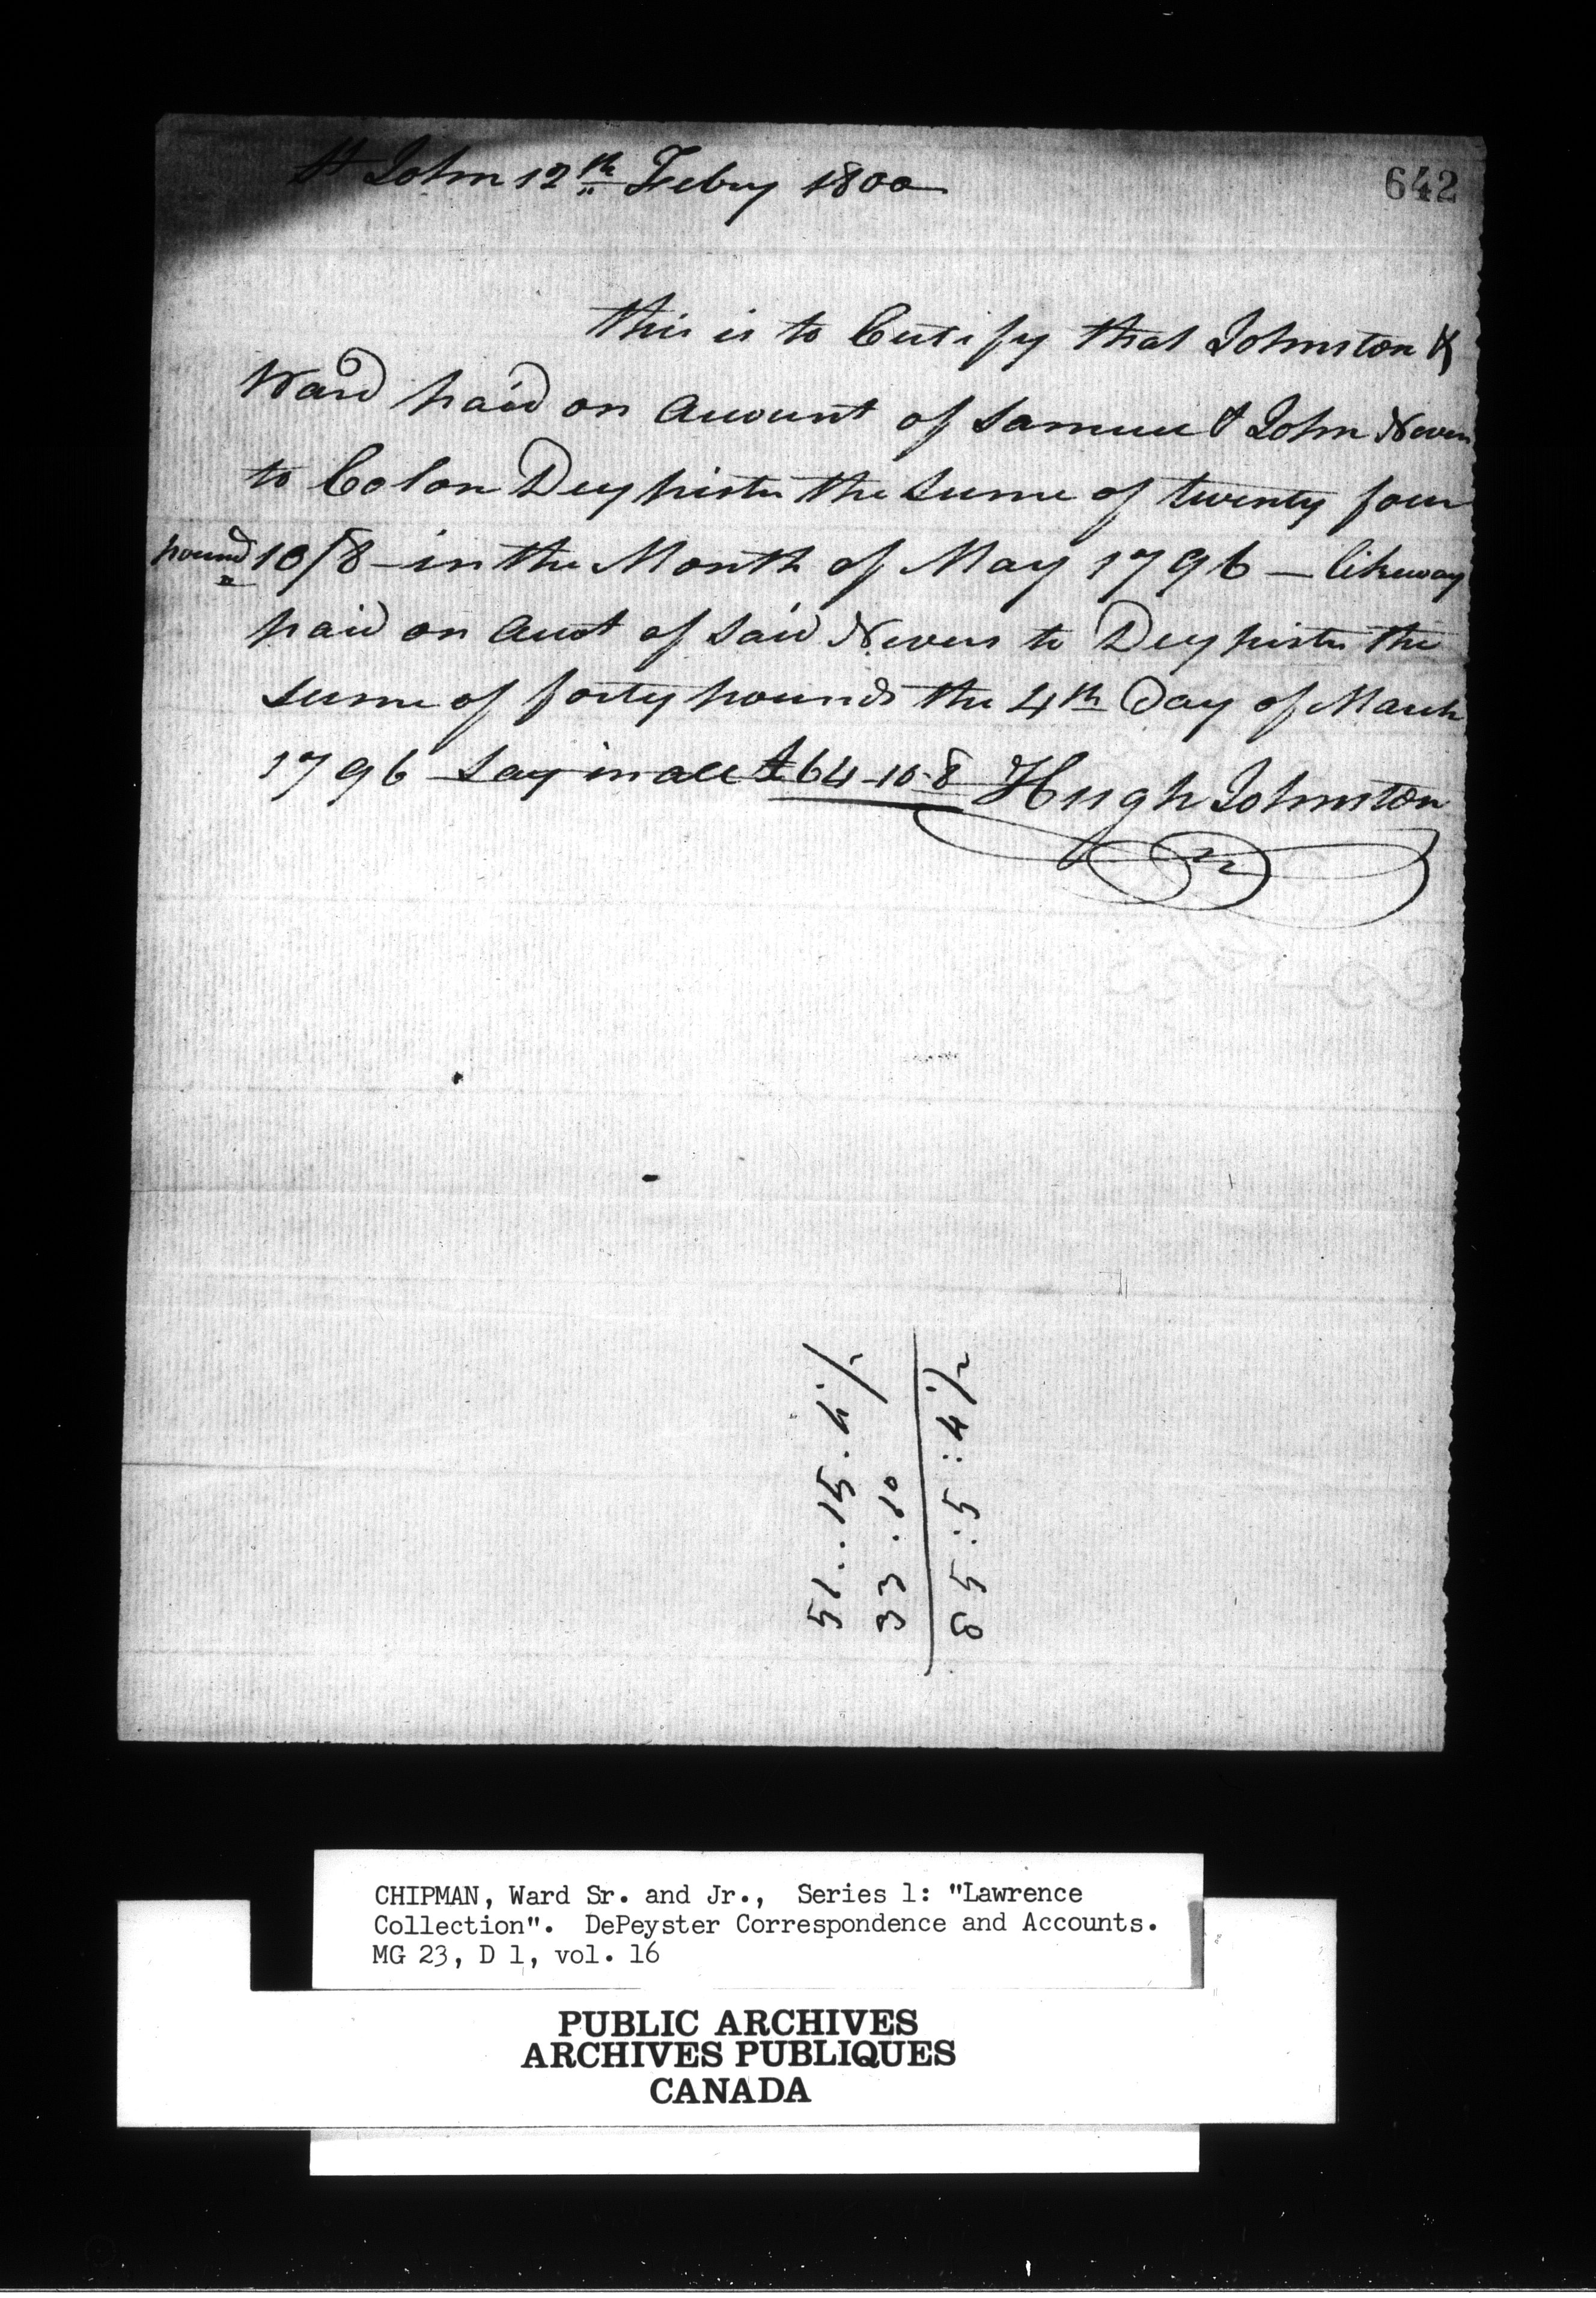 St John 12th Febry 1800
642
this is to Certify that Johnston &
Ward paid on Account of Samuel & John Nevers
to Colon Deypister the Sume of twenty four
pound 10/8 - in the Month of May 1796 - likeway
paid on Acct of Said Nevers to Deypister the
sume of forty pounds the 4th Day of March
1796 Say in all £64-10-8 Hugh Johnston
51..15.4½
33.10
85:5:4½
CHIPMAN, Ward Sr. and Jr., Series 1: "Lawrence
Collection". DePeyster Correspondence and Accounts.
MG 23, D 1, vol. 16
PUBLIC ARCHIVES
ARCHIVES PUBLIQUES
CANADA